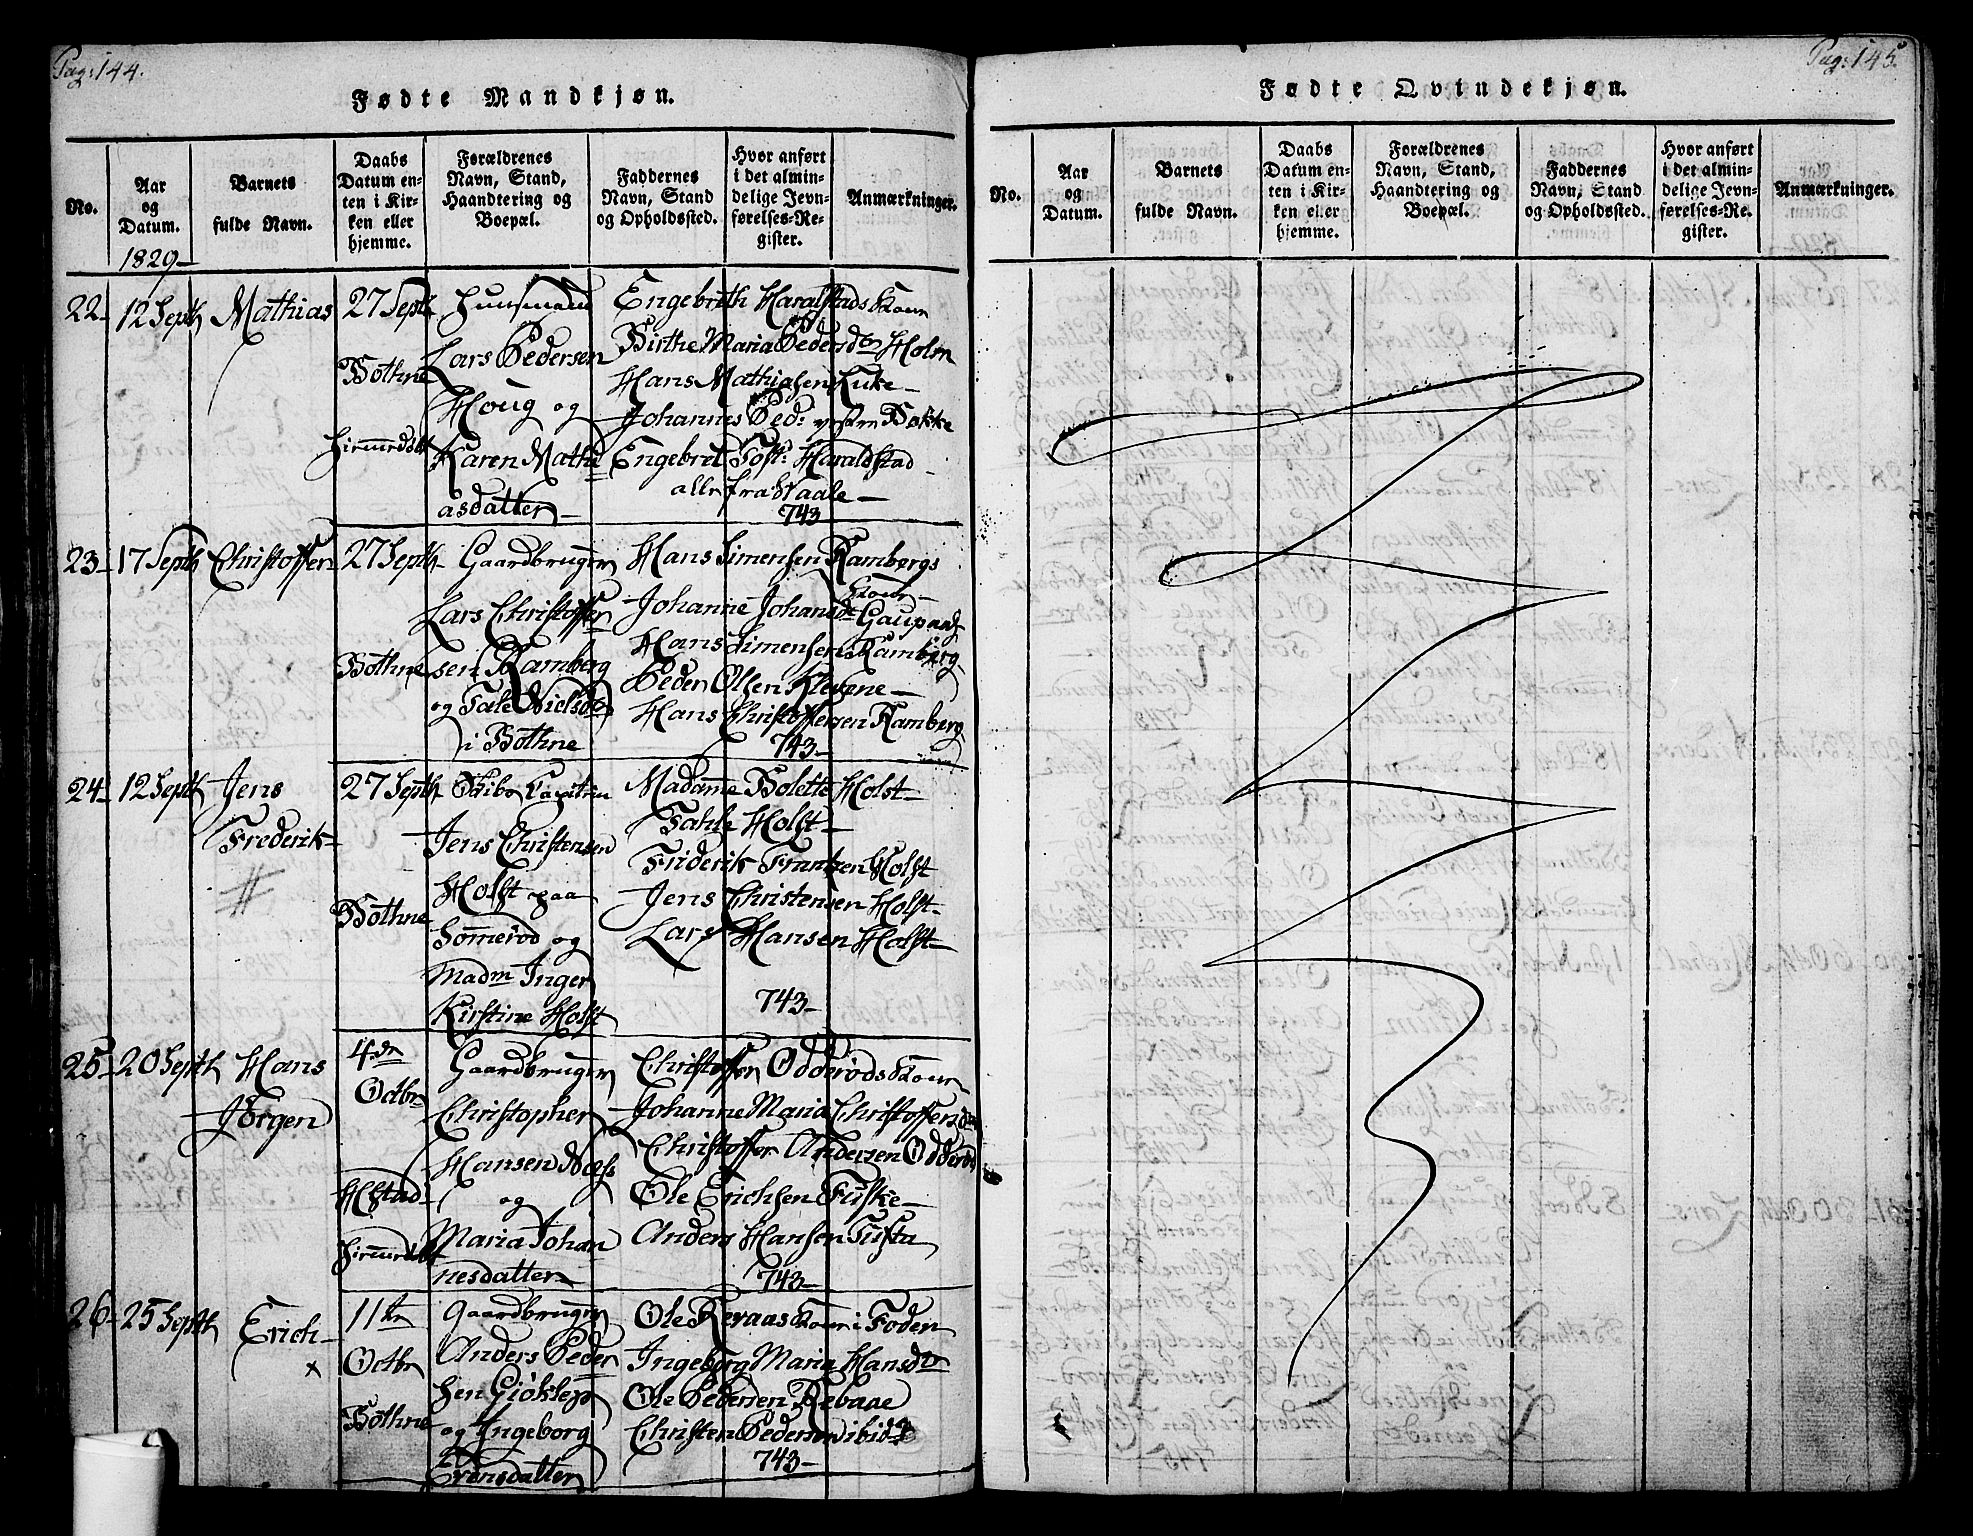 Pag: 144.
Fødte Mandkjøn.
No.
Aar
og
Datum.
Barnets
fulde Navn.
Daabs
Datum en-
ten i Kir-
ken eller
hjemme.
Forældrenes
Navn, Stand,
Haandtering og
Boepæl.
Faddernes
Navn, Stand
og Opholdssted.
Hvor anført
i det almin-
delige Jevn-
førelses-Re-
gister.
Anmærkninger.
1829-
22- 12 Septb Mathias
27 Septb
Bothne
Huusmand
Lars Pedersen
Houg og
Karen Mathi
asdatter-
Engebreth Haralstads Kone
Birthe Maria Pedersdtr Holm
Hans Mathiasen
Johannes Ped: Bakke
Engebret Tost: Haraldstad
alle fra Vaale-
743
23- 17 Septb Christoffer
27 Septb
Bothne
Gaardbruger
Lars Christoffer
sen Ramberg
og Tale Nielsdtr
i Bothne
Hans Simensen Rambergs
Kone-
Johanne Johansdr
Hans Simensen Ramberg
Peder Olsen Klevene-
Hans Christoffersen Ramberg
743-
24- 12 Septb Jens
Frederik-
#
27 Septb
Bothne
Skibs Capitein
Jens Christensen
Holst paa
Sommerød og
Madm Inger
Kirstine Holst
Madamme Bolette Holst-
Tahle Holst-
Friderik Frantzen Holst
Jens Christensen Holst-
Lars Hansen Holst-
743-
25- 20 Septb Hans
Jørgen
4de
Octbr
Gaardbruger
Christopher
Hansen
og
Maria Johan
nesdatter
Christoffer Odderøds Kone
Johanne Maria Christoffersdtr
Christoffer Andersen Odderød
Ole Erichsen Fuske-
Anders Hansen
743-
26- 25 Septb Erich-
x
11te
Octbr
Bothne
Gaardbruger
Anders Peder
sen Giøklep
og Ingeborg
Ole Kone i Foden
Ingeborg Maria Hansdtr
Ole Pedersen
Christen Pedersen ibid:
743-
Pag: 145.
Fødte Qvindekjøn.
No.
Aar
og
Datum.
Barnets
fulde Navn.
Daabs
Datum en-
ten i Kir-
ken eller
hjemme.
Forældrenes
Navn, Stand,
Haandtering og
Boepæl.
Faddernes
Navn, Stand
og Opholdssted.
Hvor anført
i det almin-
delige Jevn-
førelses-Re-
gister.
Anmærkninger.